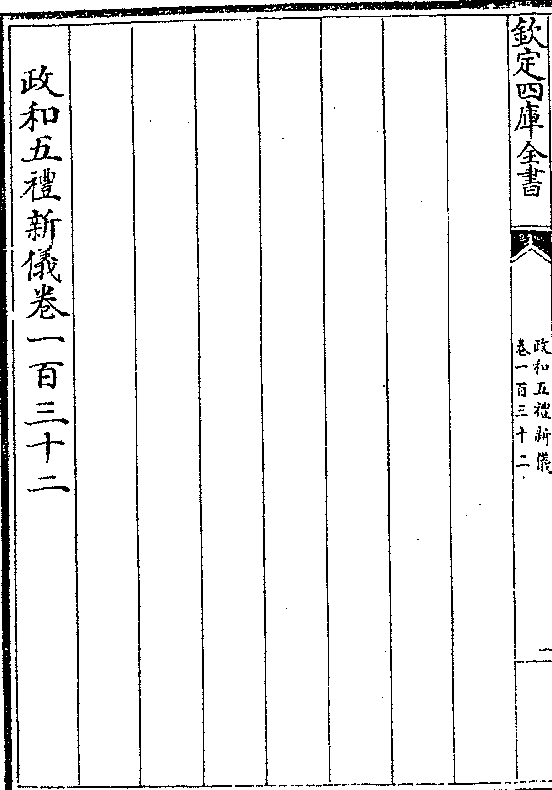 欽定四庫全書
政和五禮新儀
卷一百三十二
一
政和五禮新儀卷一百三十二